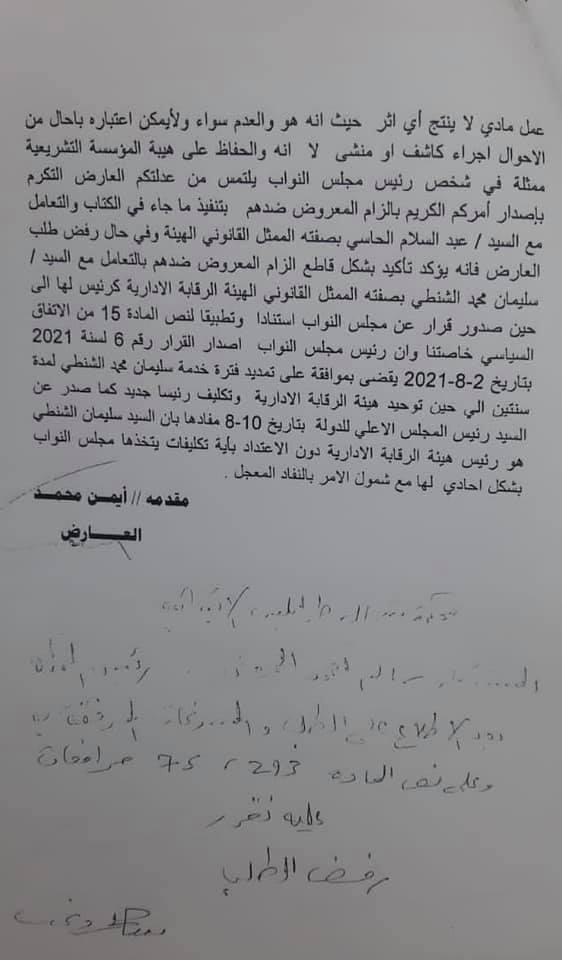 عمل مادي لا ينتج أي اثر حيث انه هو والعدم سواء ولأيمكن اعتباره باحال من
الاحوال اجراء كاشف او منشى لا انه والحفاظ على هيبة المؤسسة التشريعية
ممثلة في شخص رئيس مجلس النواب يلتمس من عدلتكم العارض التكرم
بإصدار أمركم الكريم بالزام المعروض ضدهم بتنفيذ ما جاء في الكتاب والتعامل
مع السيد / عبد السلام الحاسي بصفته الممثل القانوني الهيئة وفي حال رفض طلب
العارض فانه يؤكد تأكيد بشكل قاطع الزام المعروض ضدهم بالتعامل مع السيد /
سليمان محمد الشنطي بصفته الممثل القانوني الهيئة الرقابة الادارية كرئيس لها الى
حين صدور قرار عن مجلس النواب استنادا وتطبيقا لنص المادة 15 من الاتفاق
السياسي خاصتنا وان رئيس مجلس النواب اصدار القرار رقم 6 لسنة 2021
بتاريخ 2-8-2021 يقضى بموافقة على تمديد فترة خدمة سليمان محمد الشنطي لمدة
سنتين الي حين توحيد هيئة الرقابة الادارية وتكليف رئيسا جديد كما صدر عن
السيد رئيس المجلس الاعلي للدولة بتاريخ 10-8 مفادها بان السيد سليمان الشنطي
هو رئيس هيئة الرقابة الادارية دون الاعتداد بأية تكليفات يتخذها مجلس النواب
بشكل احادي لها مع شمول الامر بالنفاد المعجل .
مقدمه // أيمن محمد
العارض
محكمة الابتدائية
سالم
بعد الاطلاع على الطلب والمستندات المرفقة
وعلى نص المادة 293 ، 75 مرافعات
عليه نقرر
رفض الطلب